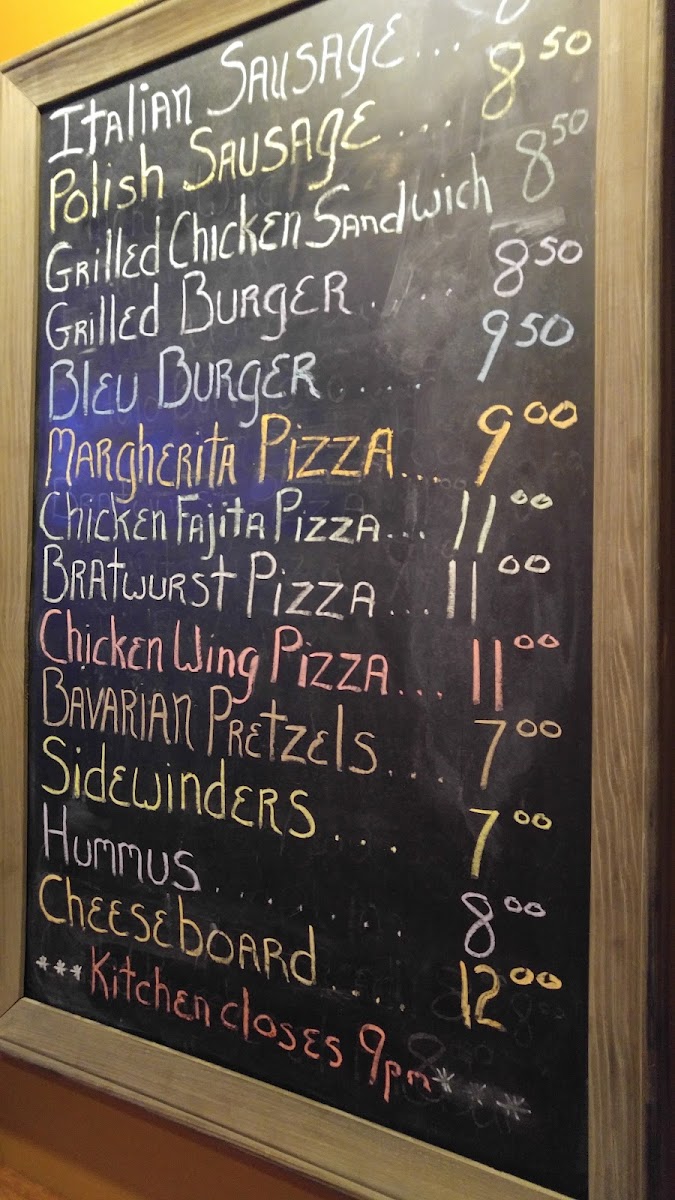 Italian Sausage ...
Polish Sausage .... 8 50
Grilled Chicken Sandwich 8 50
Grilled Burger ..... 8 50
Bleu Burger ..... 9 50
Margherita Pizza ... 9 00
Chicken Fajita Pizza ... 11 00
Bratwurst Pizza ... 11 00
Chicken Wing Pizza ... 11 00
Bavarian Pretzels .... 7 00
Sidewinders .... 7 00
Hummus ........ 8 00
Cheeseboard .... 12 00
*** Kitchen closes 9pm ***